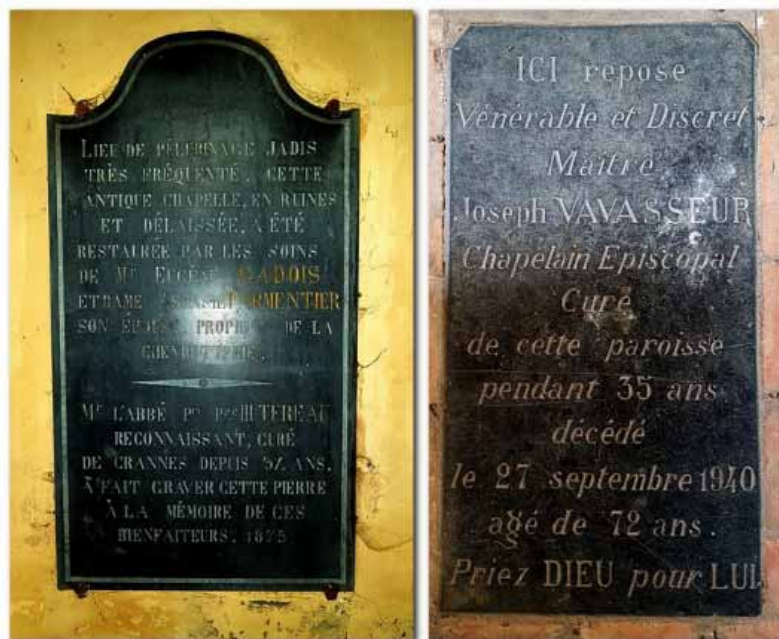 LIEU DE PÉLERINAGE JADIS
TRÈS FRÉQUENTÉ, CETTE
ANTIQUE CHAPELLE, EN RUINES
ET DÉLAISSÉE, A ÉTÉ
RESTAURÉE PAR LES SOINS
DE Mr EUGÈNE GADOIS
ET DAME
SON ÉPOUSE, DE LA
Mr L'ABBÉ
RECONNAISSANT, CURÉ
DE CRANNES DEPUIS ANS,
A FAIT GRAVER CETTE PIERRE
À LA MÉMOIRE DE CES
BIENFAITEURS. 1875
ICI repose
Vénérable et Discret
Maitre
Joseph VAVASSEUR
Chapelain Episcopal
Curé
de cette paroisse
pendant 35 ans
décédé
le 27 septembre 1940
agé de 72 ans.
Priez DIEU pour LUI